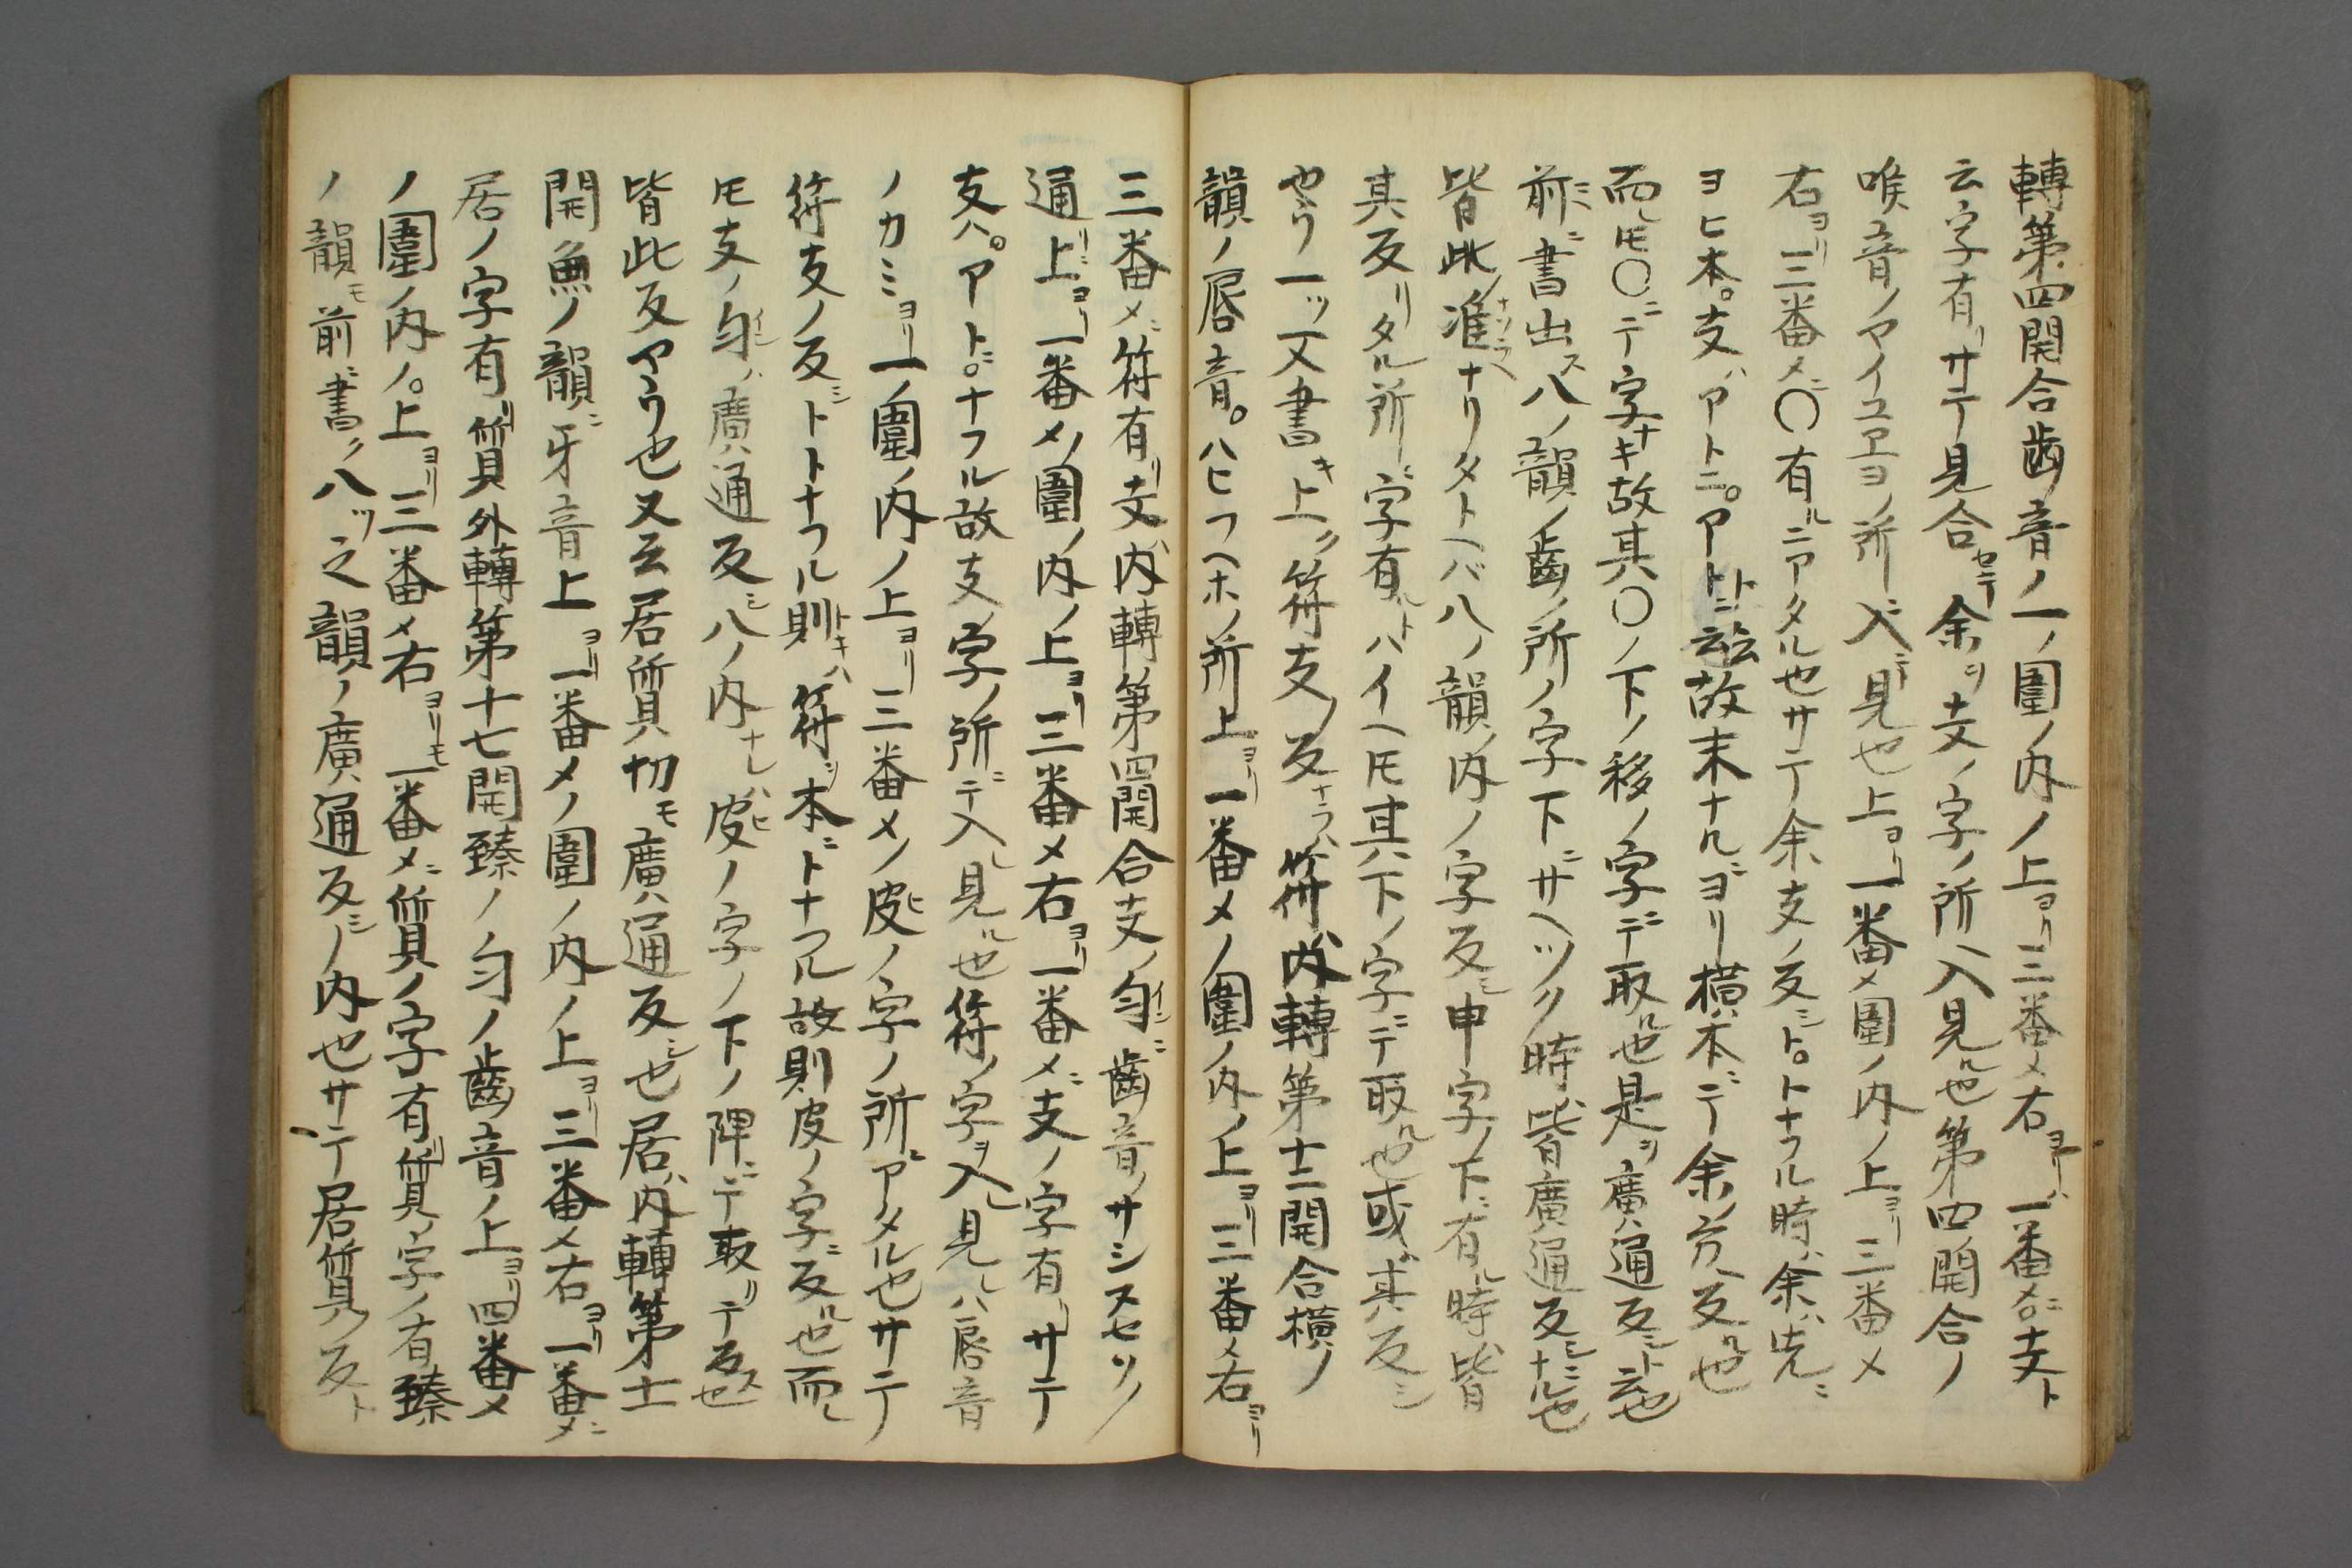 轉第四開合齒音ノ一ノ圍ノ内ノ上ヨリ三番メ右ヨリハ一番メニ支ト
云字有リサテ見合セテ余ヲ支ノ字ノ所入見ル也第四開合ノ
喉音ノヤイユヱヨノ所ニ入テ見也上ヨリ一番メ圍ノ内ノ上ヨリ三番メ
右ヨリ三番メニ〇有ルニアタル也サテ余支ノ反シト。トナフル時ハ余ハ先ニ
ヨヒ本。支ハアトニ。アトニ云故末ナルニヨリ横ハ本ニテ余ノ方ヘ反ル也
而レ𪜈〇ニテ字ナキ故其〇ノ下ノ移ノ字ニテ取ル也是ヲ廣通反シト云也
前ミニ書出ス八ノ韻ノ齒ノ所ノ字下ニサヘツク時ハ皆廣通反シニナル也
皆此ノ准ナソラヘナリタトヘバ八ノ韻ノ内ノ字反シ申字ノ下ニ有ル時ハ皆
其反リタル所ニ字有ルトハイヘ𪜈其下ノ字ニテ取ル也或ハ其反シ
ヤウ一ツ又書キ上ク符支ノ反ナラハ符ハ内轉第十二開合横ノ
韻ノ唇音。ハヒフヘホノ所上ヨリ一番メノ圍ノ内ノ上ヨリ三番メ右ヨリ
三番メニ符有リ支ハ内轉第四開合支ノ匀インニ齒音ノサシスセソノ
通リニ上ヨリ一番メノ圍ノ内ノ上ヨリ三番メ右ヨリ一番メニ支ノ字有リサテ
支ハ。アトニ。ナフル故支ノ字ノ所ニテ入レ見ル也符ノ字ヲ入レ見レハ唇音
ノカミヨリ一ノ圍ノ内ノ上ヨリ三番メノ皮ヒノ字ノ所ニアタル也サテ
符支ノ反シトトナフル則トキハ符ヲ本ニトナフル故則皮ノ字ニ反ル也而レ
𪜈支ノ匀インハ廣通反シ八ノ内ナレハ皮ヒノ字ノ下ノ陴ニテ取リテ反ス也
皆此反ヤウ也又云居質切モ廣通反シ也居ハ内轉第十一
開魚ノ韻ニ牙音上ヨリ一番メノ圍ノ内ノ上ヨリ三番メ右ヨリ一番メニ
居ノ字有リ質外轉第十七開臻ノ匀ノ齒音ノ上ヨリ四番メ
ノ圍ノ内ノ。上ヨリ三番メ右ヨリモ一番メニ質ノ字有リ質ノ字ノ有臻
ノ韻モ前ニ書ク八ツ之韻ノ廣通反シノ内也サテ居質ノ反ト